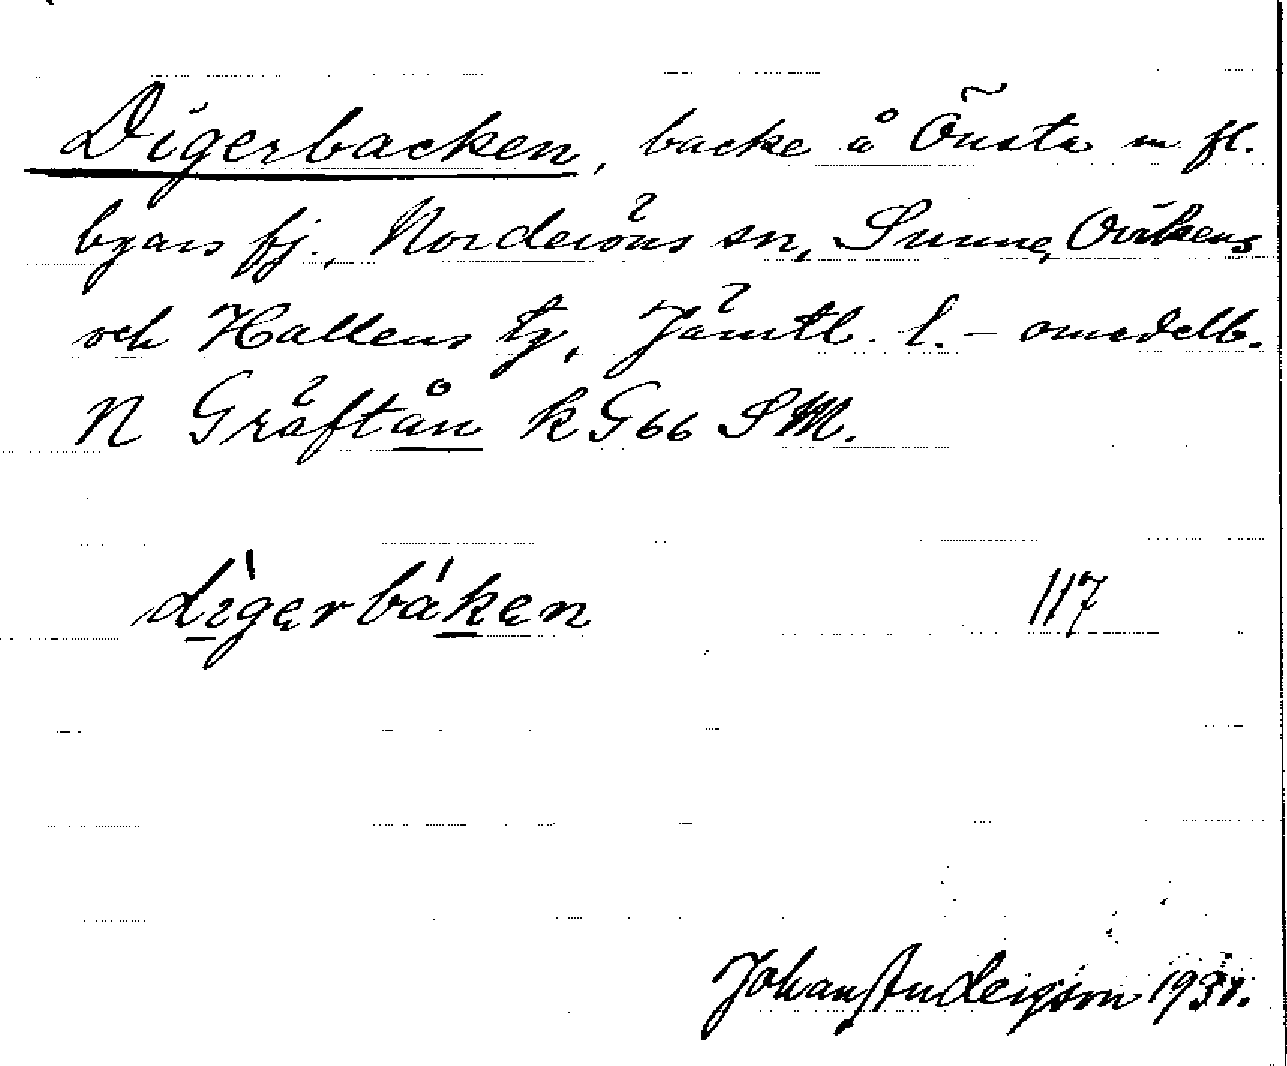 Digerbacken, backe å Önsta m fl.
byars fj., Norderöns sn, Sunne, Ovikens
och Hallens tg, Jämtl. l. - omedelb.
N Gräftån k G66 SM.
digerbaken 117
Johan Andersson